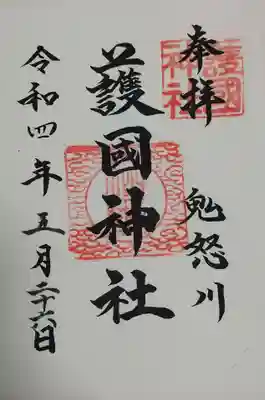 奉拝
鬼怒川
護國神社
令和四年五月二十六日
護國神社